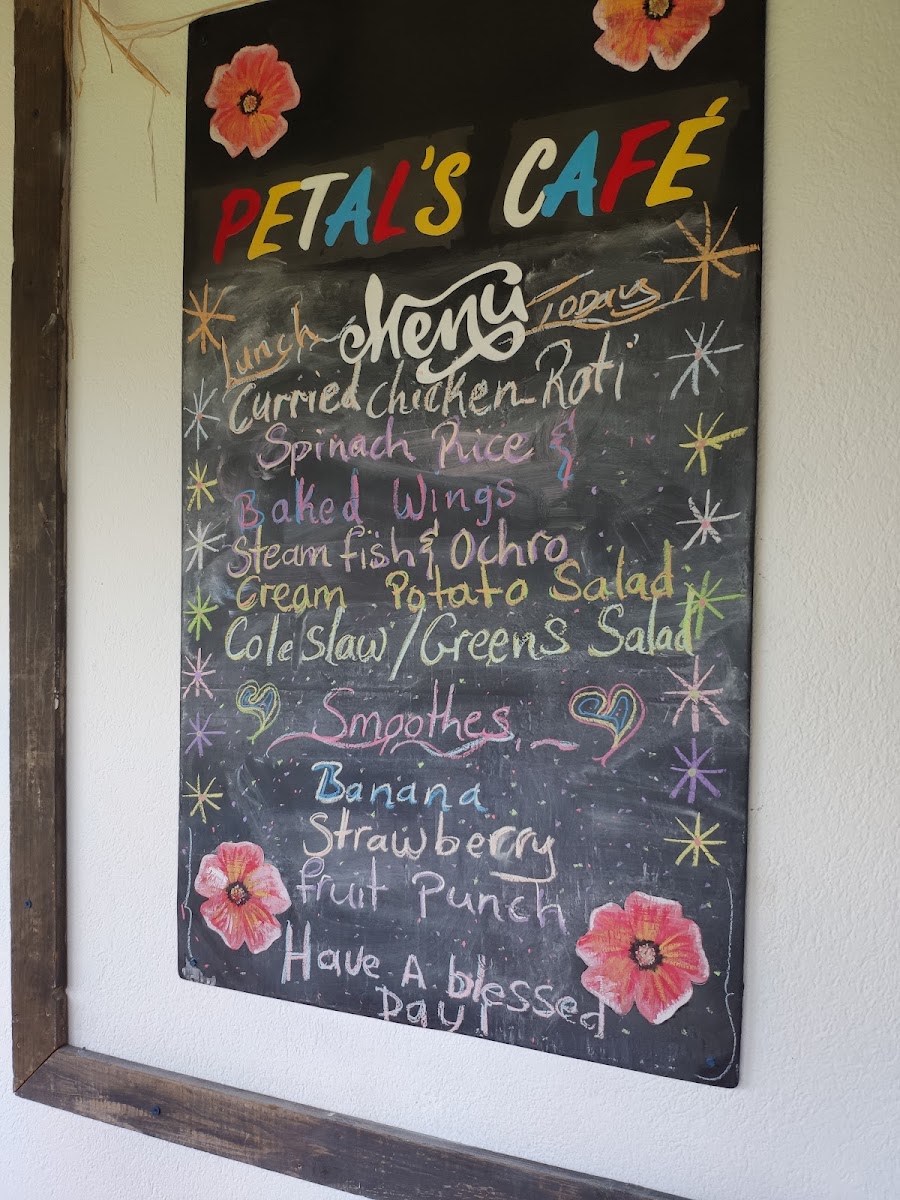 PETAL'S CAFÉ
Lunch Menu Todays
Curried chicken Roti
Spinach Rice &
Baked Wings
Steam fish & Ochro
Cream Potato Salad
Coleslaw / Greens Salad
Smoothes
Banana
Strawberry
fruit Punch
Have A blessed
Day!